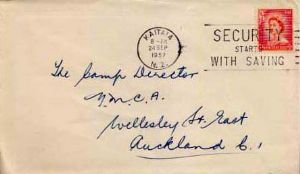 KAITAIA
8 - AM
24 SEP
1957
N.Z.
SECURITY
START
WITH SAVING
The Camp Director
Y.M.C.A.
Wellesley St. East
Auckland C.1